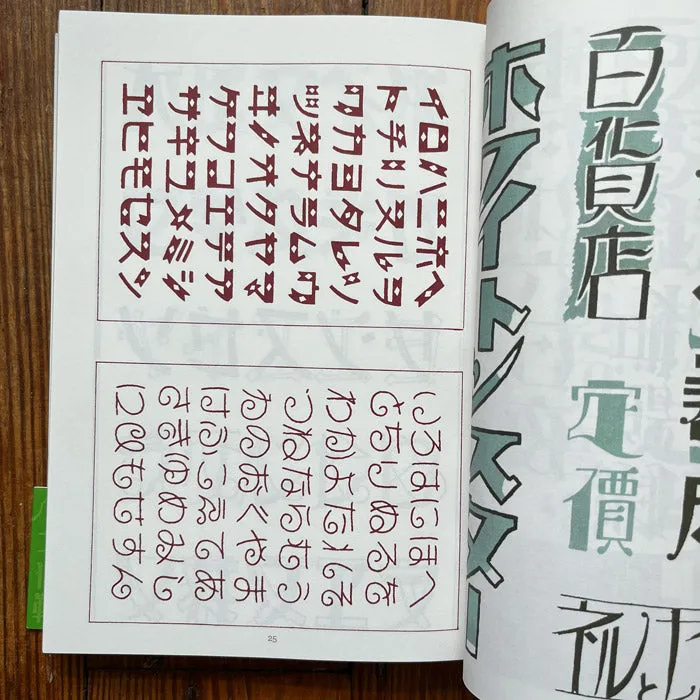 イロハニホヘ
トチリヌルヲ
ワカヨタレソ
ツネナラムウ
ヰノオクヤマ
ケフコエテア
サキユメミシ
ヱヒモセスン
いろはにほへ
とちりぬるを
わかよたれそ
つねならむう
ゐのおくやま
けふこえてあ
さきゆめみし
ゑひもせすん
25
百貨店
定價
ホワイトンスター
ネルと